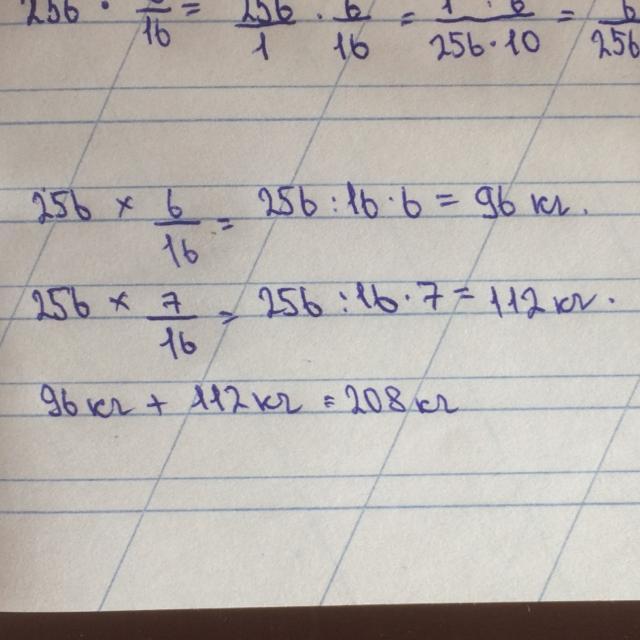 256 · 6/16 = 256/1 · 6/16 = 1 · 6/256·10 = 6/256
256 × 6/16 = 256 : 16 · 6 = 96 кг.
256 × 7/16 = 256 : 16 · 7 = 112 кг.
96 кг + 112 кг = 208 кг